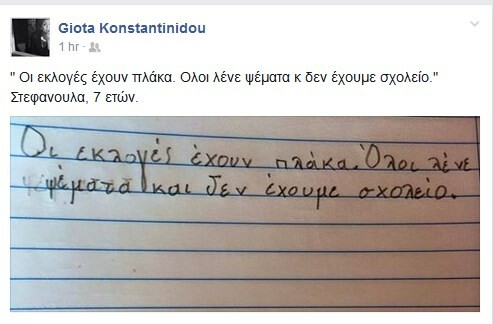 Giota Konstantinidou
1 hr
" Οι εκλογές έχουν πλάκα. Ολοι λένε ψέματα κ δεν έχουμε σχολείο."
Στεφανουλα, 7 ετών.
Οι εκλογές έχουν πλάκα. Όλοι λένε
ψέματα και δεν έχουμε σχολείο.